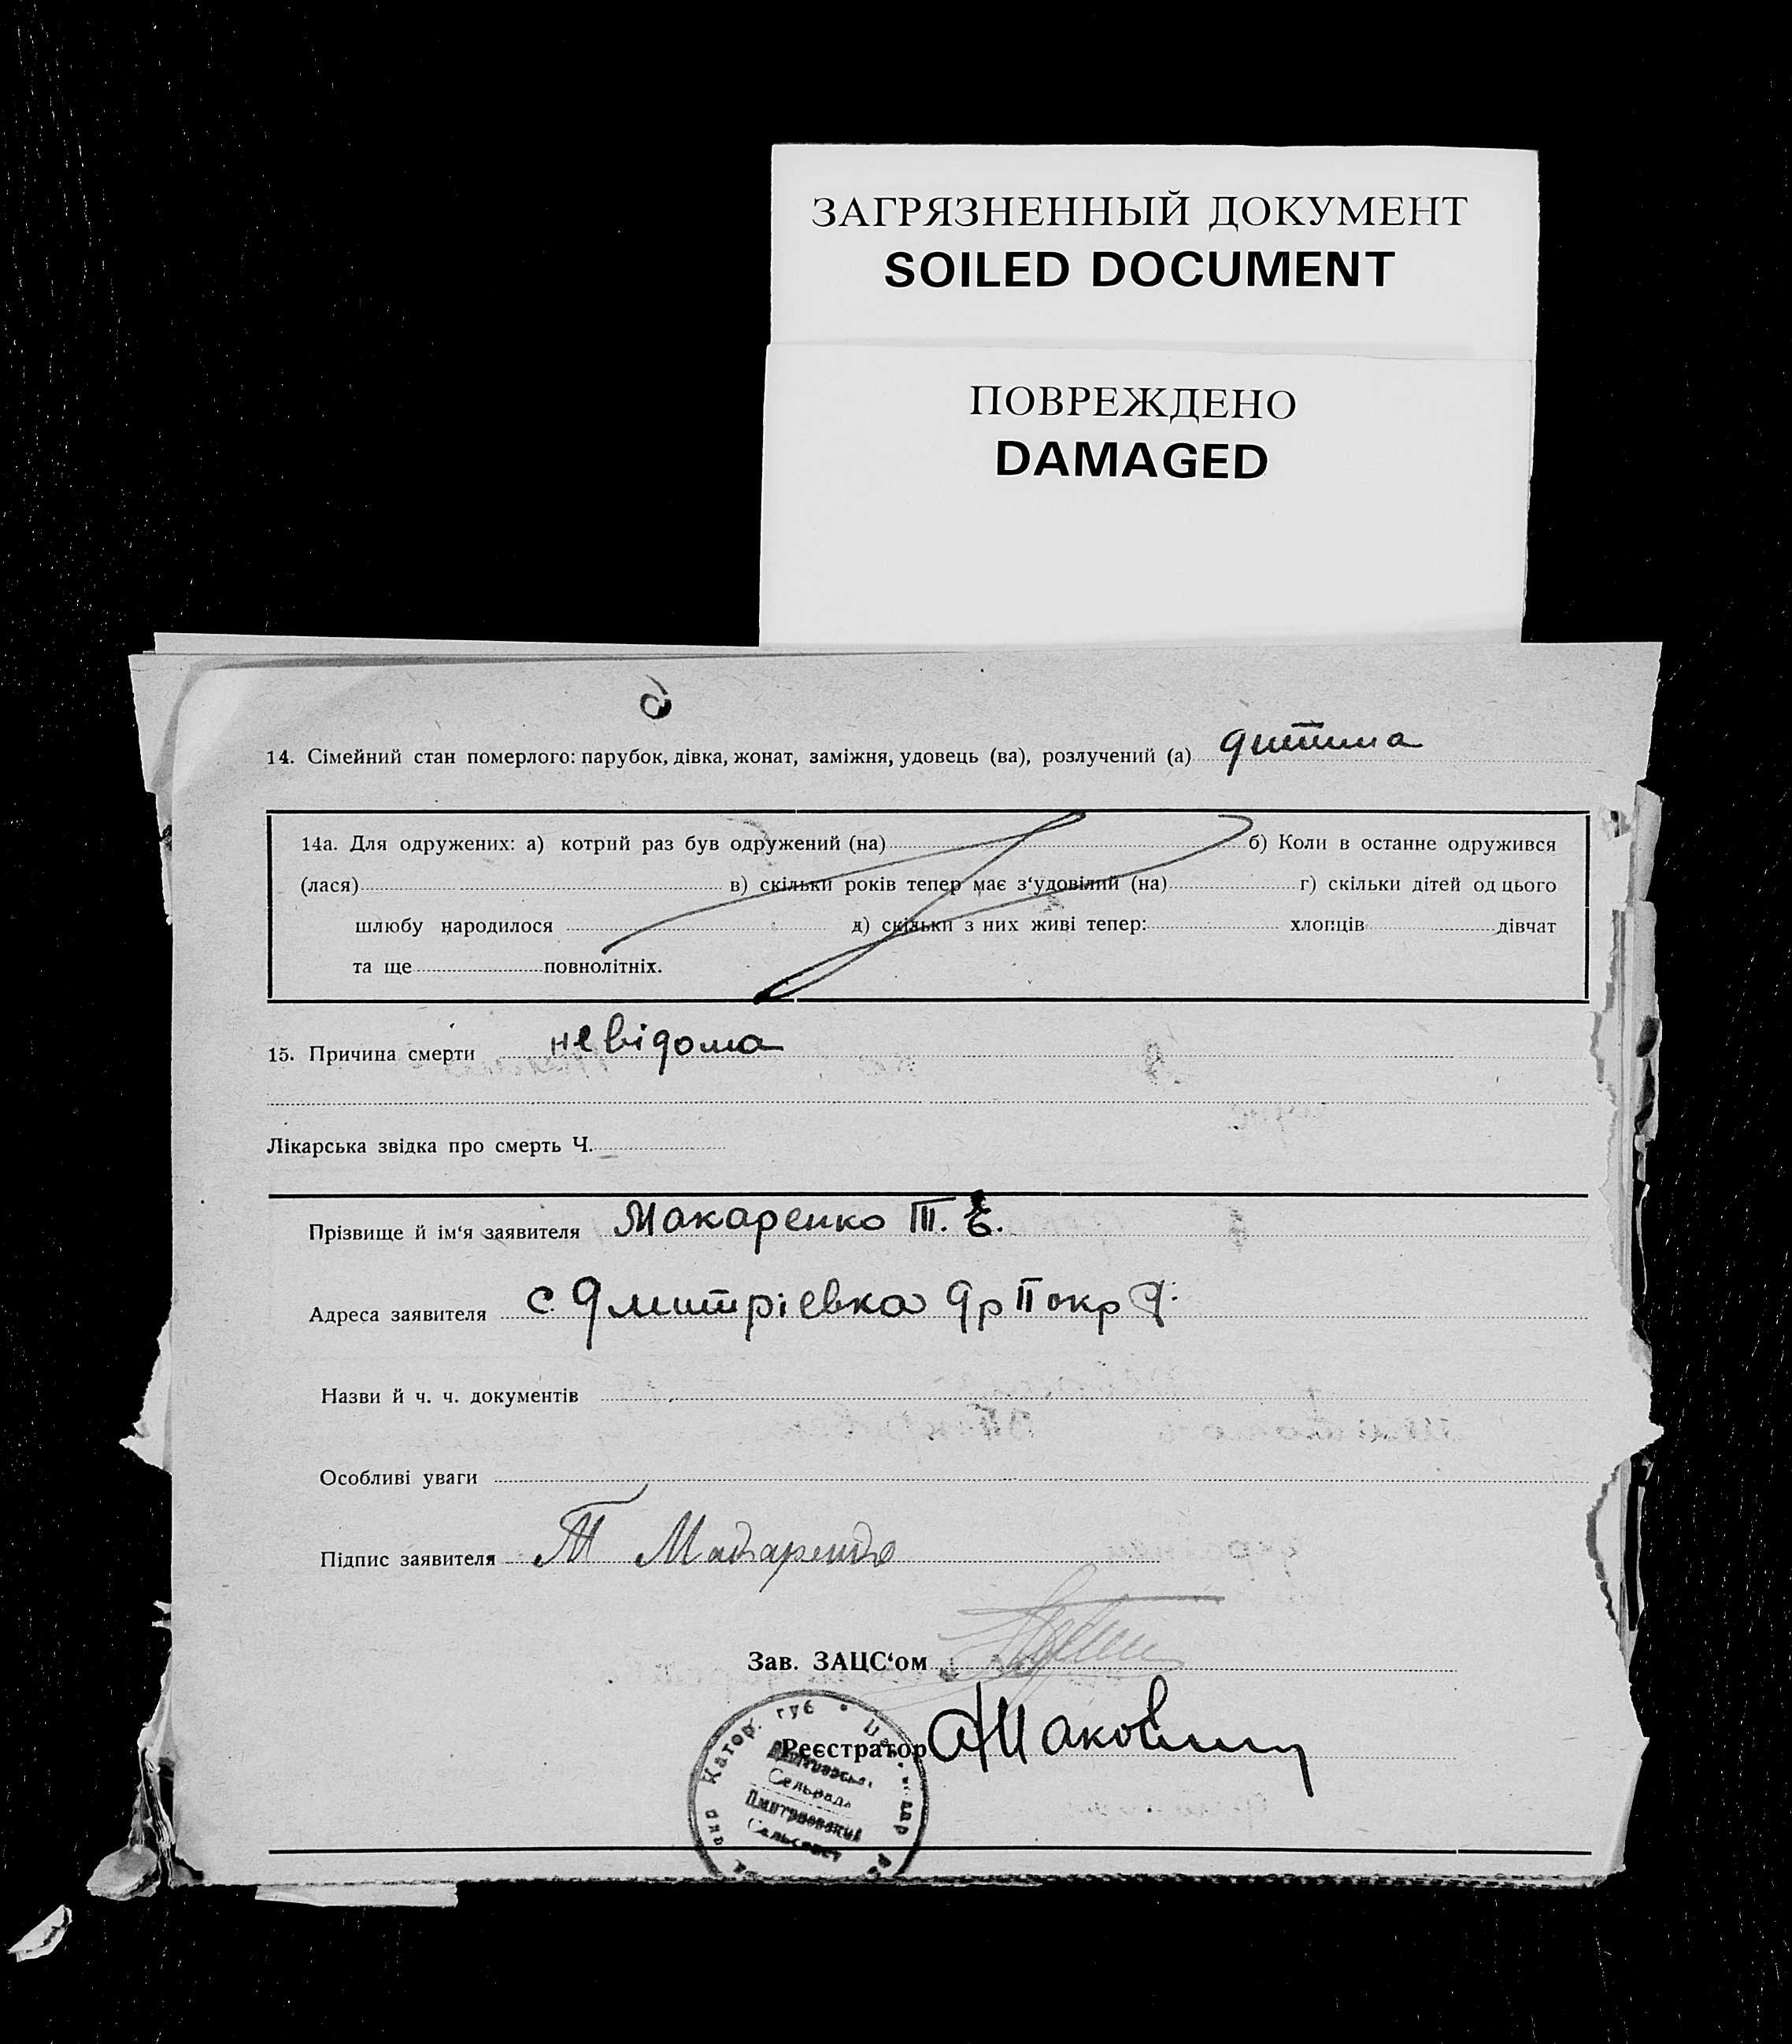 ЗАГРЯЗНЕННЫЙ ДОКУМЕНТ
SOILED DOCUMENT
ПОВРЕЖДЕНО
DAMAGED
14. Сімейний стан померлого: парубок, дівка, жонат, заміжня, удовець (ва), розлучений (а) дитина
14а. Для одружених: а) котрий раз був одружений (на) б) Коли в останне одружився
(лася) в) скільки років тепер має з‘удовілий (на) г) скільки дітей од цього
шлюбу народилося д) скільки з них живі тепер: хлопців дівчат
та ще повнолітніх.
15. Причина смерти невідома
Лікарська звідка про смерть Ч.
Прізвище й ім‘я заявителя Макаренко Т. Е.
Адреса заявителя с. Дмитріевка Др Покр
Назви й ч. ч. документів
Особливі уваги
Підпис заявителя Т Макаренко
Зав. ЗАЦС‘ом
Реєстратор
Катер. губ
Сельрада
Дмитриевский
Сельсовет